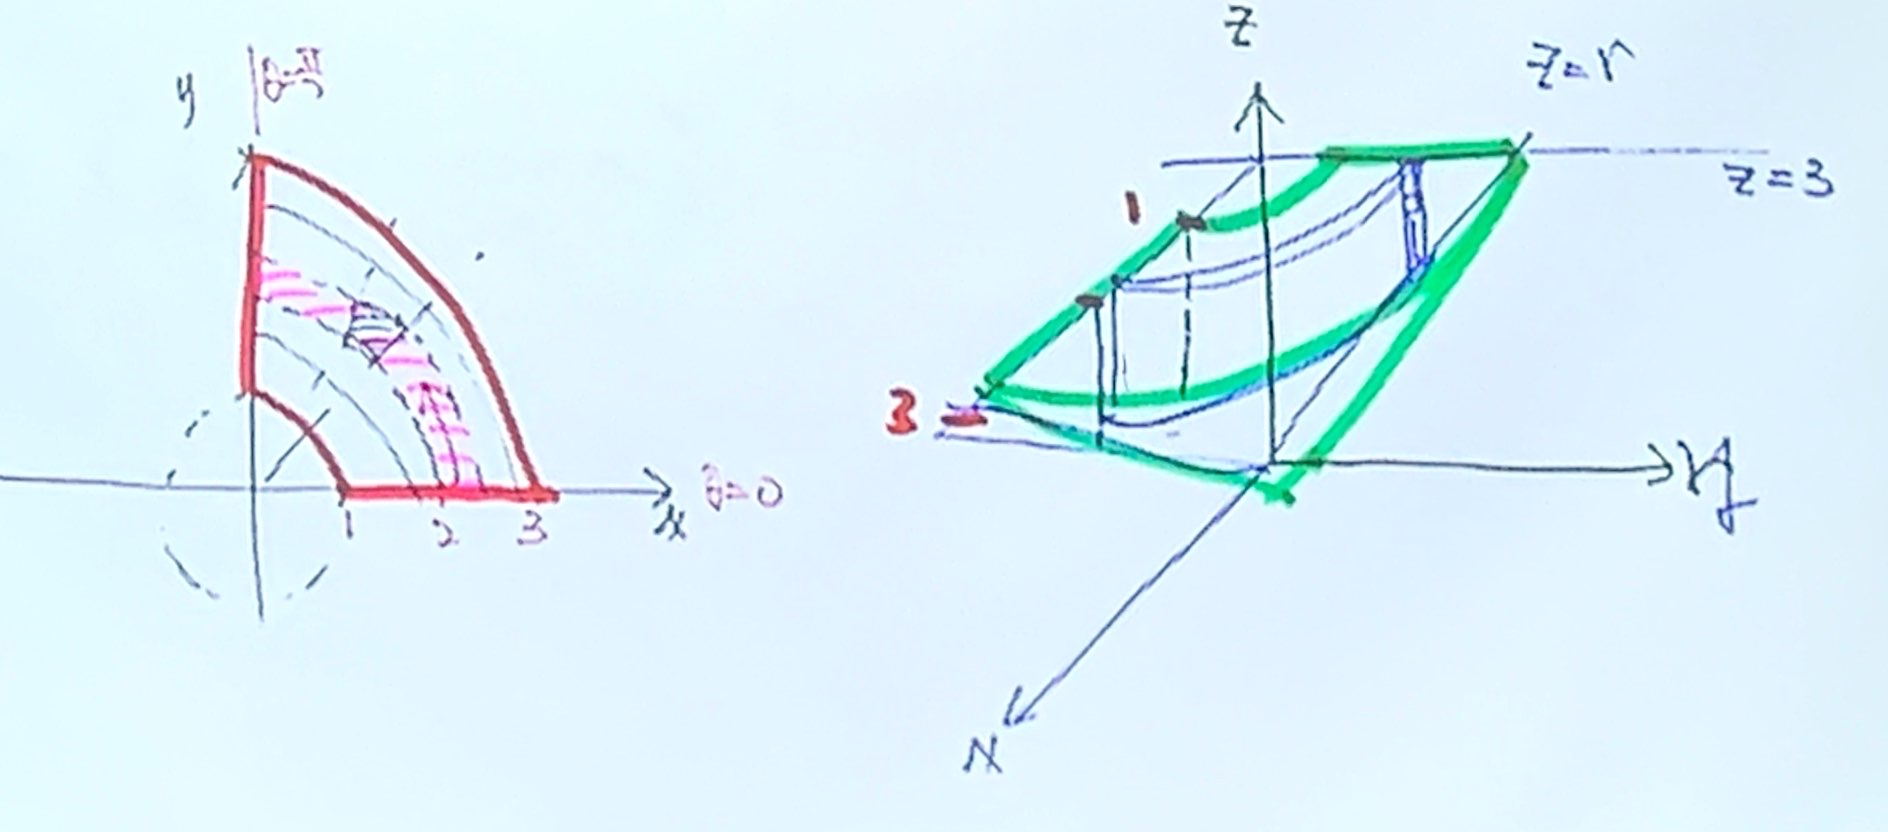 y
θ=π/2
1 2 3
x
θ=0
z
z=r
z=3
1
3
y
x